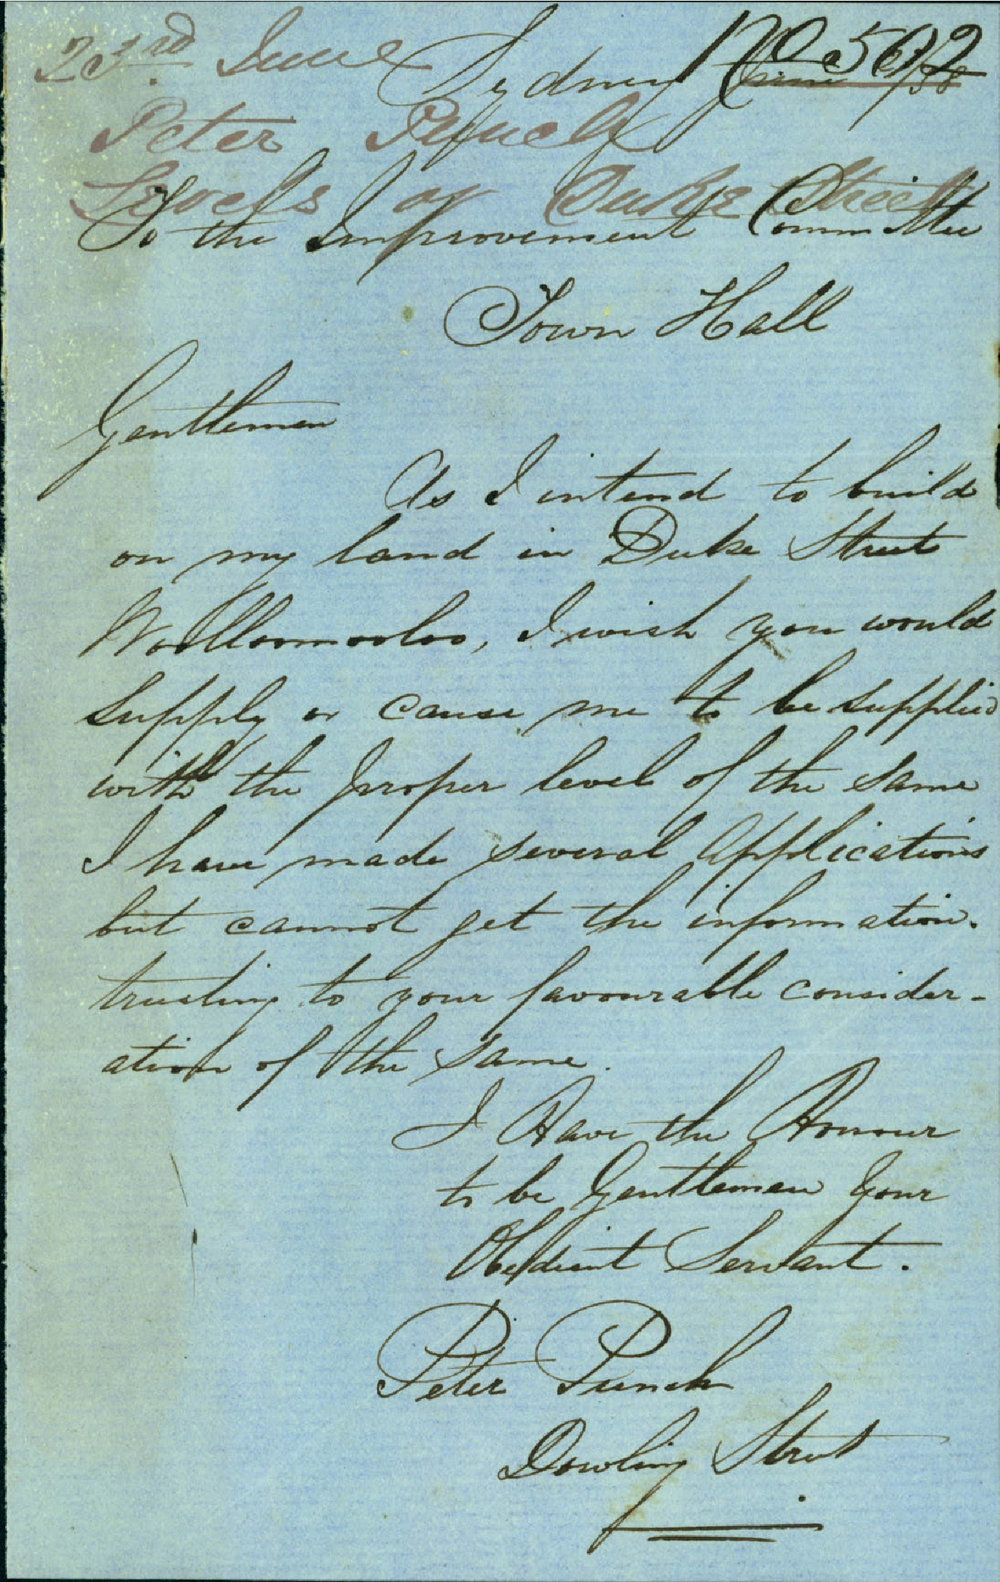 23rd June
Sydney June /58
No 502
Peter Punch
Levels of Duke Street
To the Improvement Committee
Town Hall
Gentlemen
As I intend to build
on my land in Duke Street
Woolloomooloo, I wish you would
supply or cause me to be supplied
with the proper level of the same
I have made several Applications
but cannot get the information.
trusting to your favourable consider-
ation of the same.
I Have the Honour
to be Gentlemen Your
Obedient Servant.
Peter Punch
Dowling Street